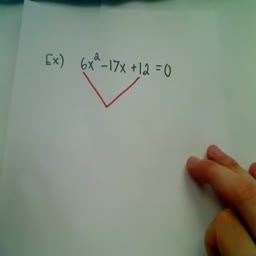 Ex) 6x² -17x +12 = 0